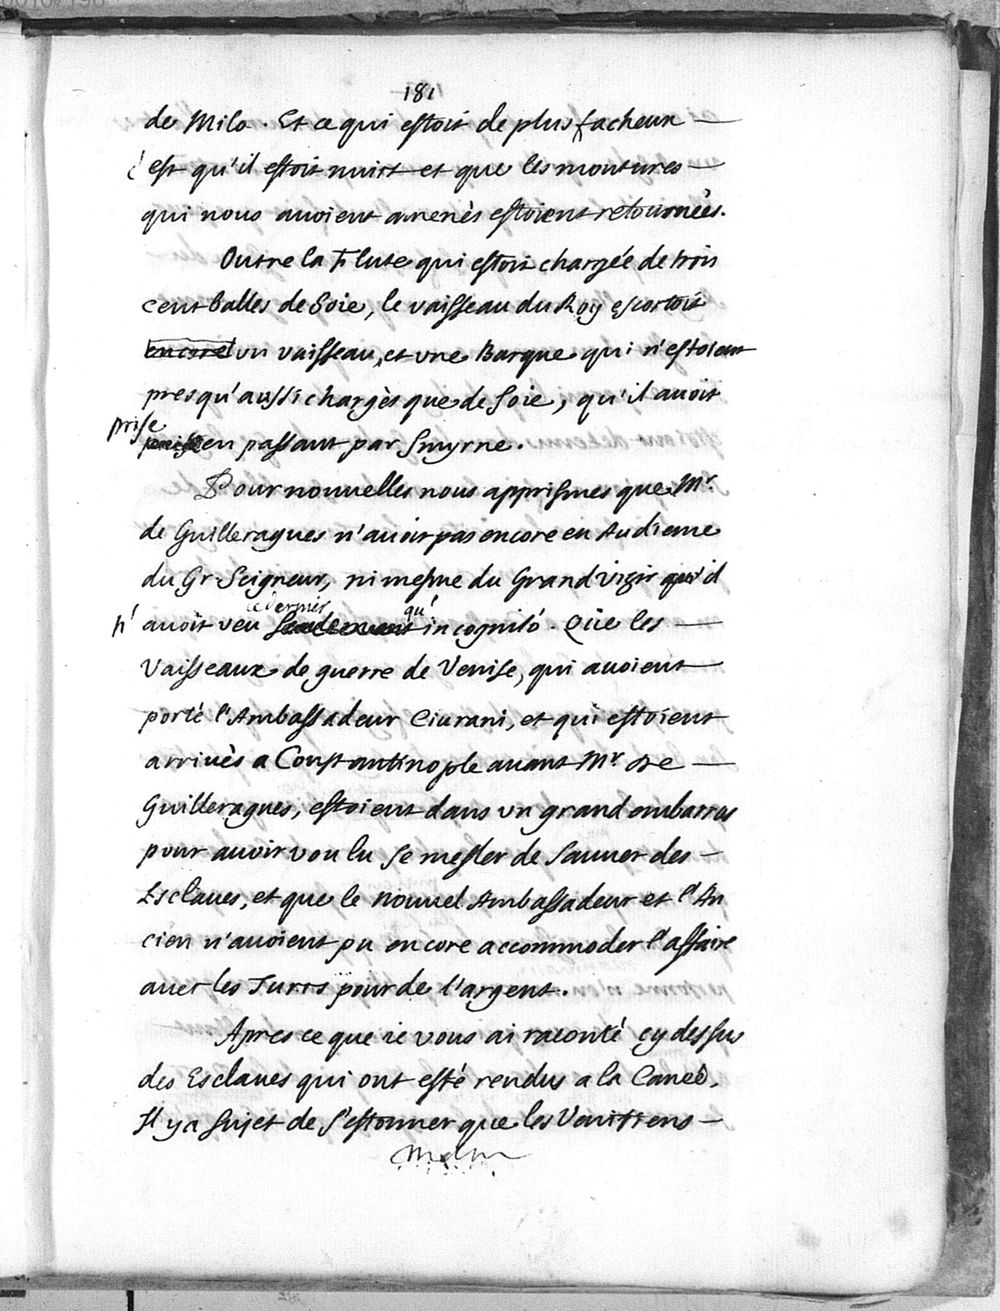 181
de Milo. Et ce qui estoit de plus facheux
c'est qu'il estoit nuict et que les montures
qui nous auoient amenès estoient retournées.
Outre la Flute qui estoit chargée de trois
cent balles de Soie, le vaisseau du Roy escortoit
encore vn vaisseau, et vne Barque qui n'estoient
presqu'aussi chargès que de soie, qu'il auoit
prise
en passant par Smyrne.
Pour nouuelles nous apprismes que Mr.
de Guilleragues n'auoit pas encore eu Audience
du Gr Seigneur, ni mesme du Grand vizir qu'il
ce dernier qu'
n'auoit veu incognitó. Que les
Vaisseaux de guerre de Venise, qui auoient
porté l'Ambassadeur Ciurani, et qui estoient
arriuès a Constantinople auant Mr de
Guilleragues, estoient dans vn grand embarras
pour auoir voulu se mesler de sauuer des
Esclaues, et que le nouuel Ambassadeur et l'An
cien n'auoient pu encore accommoder l'affaire
auec les Turcs pour de l'argent.
Apres ce que ie vous ai raconté cy dessus
des Esclaues qui ont esté rendus a la Caneé,
Il y a sujet de s'estonner que les Venitiens